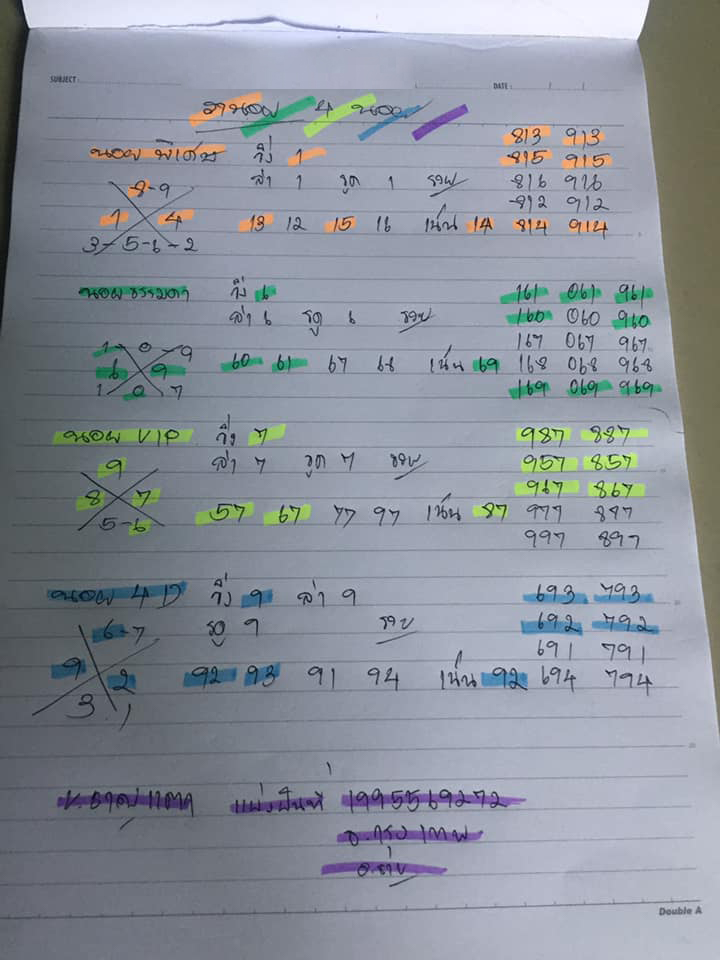 SUBJECT : DATE : / /
ฮานอย 4 นอย
นอย พิเศษ วิ่ง 1 813 913
815 915
8-9 ล่า 1 รูด 1 รวย 816 916
812 912
1 4 13 12 15 16 เน้น 14 814 914
3-5-6-2
นอย ธรรมดา วิ่ง 6 161 061 961
ล่า 6 รูด 6 รวย 160 060 960
1-0-9 167 067 967
6 9 60 61 67 68 เน้น 69 168 068 968
1 0 7 169 069 969
นอย VIP วิ่ง 7 987 887
9 ล่า 7 รูด 7 รวย 957 857
967 867
8 7 57 67 77 97 เน้น 87 977 877
5-6 997 897
นอย 4 D วิ่ง 9 ล่า 9 693 793
6-7 รูด 9 รวย 692 792
691 791
9 2 92 93 91 94 เน้น 92 694 794
3 1
แบ่งปันที่ 1995569272
จ.กรุงเทพ
Double A